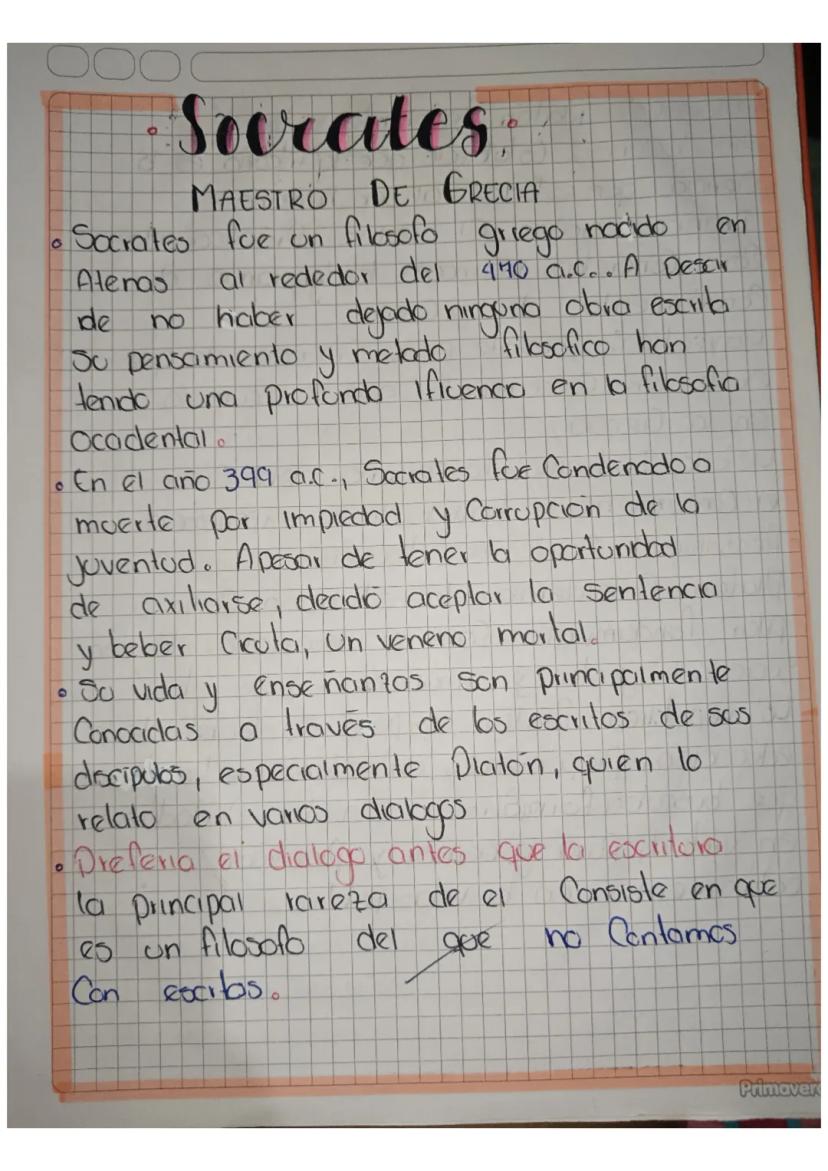 Socrates
MAESTRO DE GRECIA
Socrates fue un filosofo griego nacido en
Atenas al rededor del 470 a.c.. A Pesar
de no haber dejado ninguna obra escrita
su pensamiento y metodo filosofico han
tenido una profunda ifluencia en la filosofia
Occidental.
En el año 399 a.c., Socrates fue Condenado a
muerte por impiedad y Corrupcion de la
juventud. Apesar de tener la oportunidad
de axiliarse, decidio aceptar la sentencia
y beber Cicuta, un veneno mortal.
Su vida y enseñanzas son principalmente
Conocidas a través de los escritos de sus
discipulos, especialmente Platón, quien lo
relato en varios dialogos
Preferia el dialogo antes que la escritura
la principal rareza de el Consiste en que
es un filosofo del que no Contamos
Con escritos.
Primaver